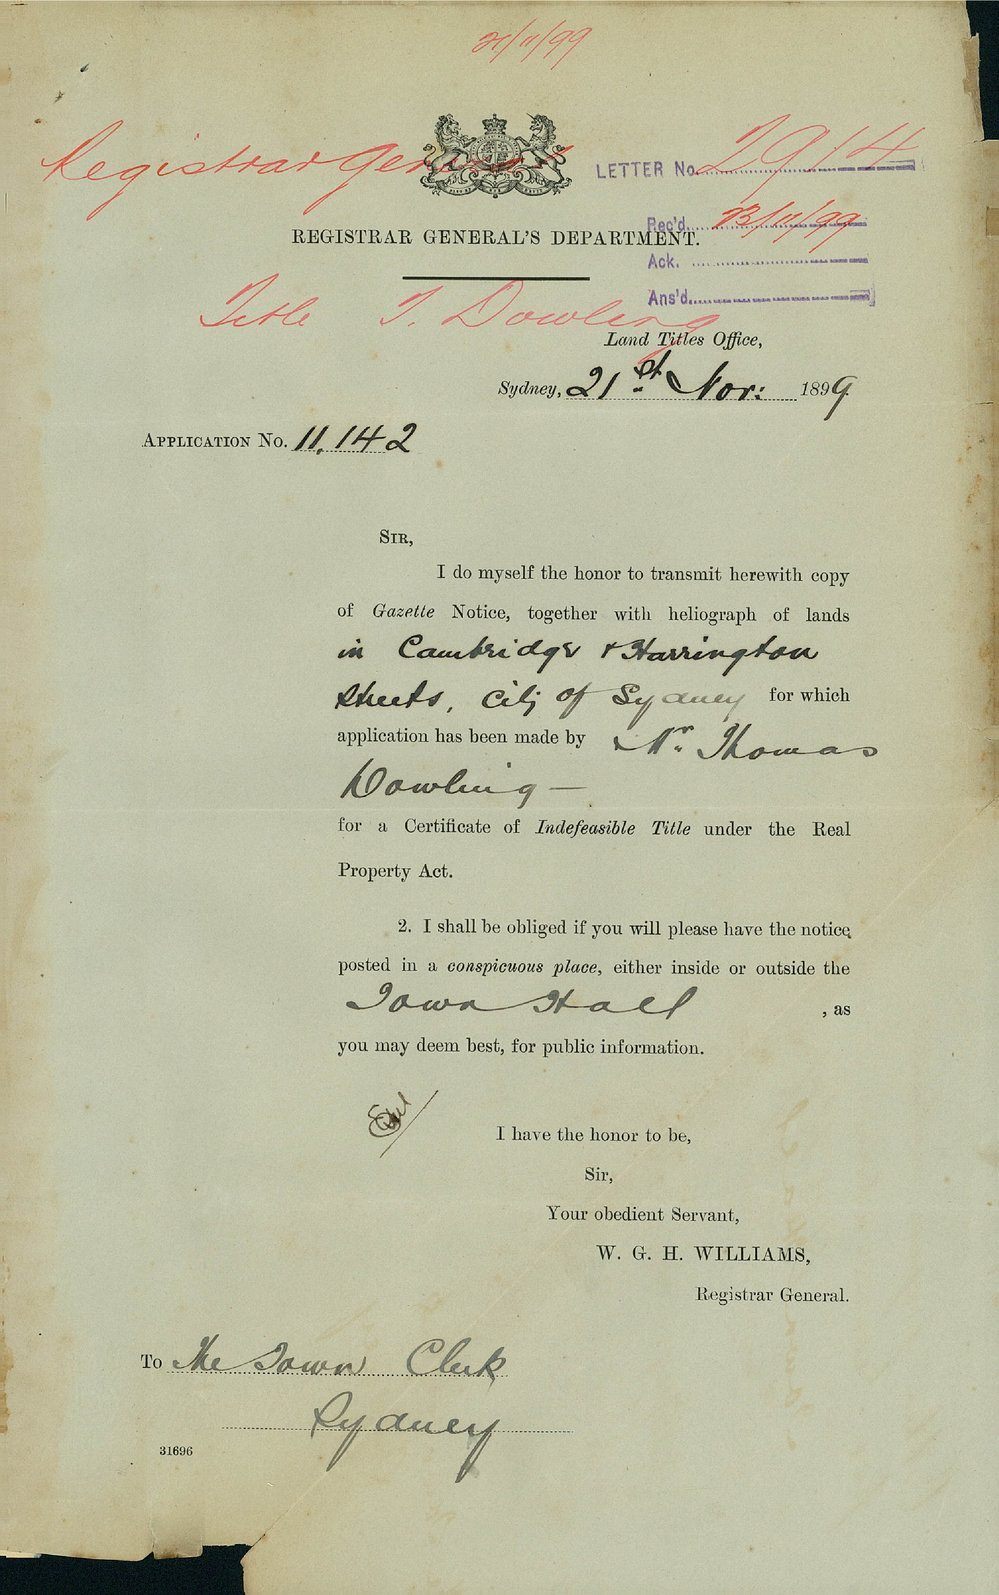 21/11/99
Registrar General
LETTER No. 2914
Rec'd. 23/11/99
REGISTRAR GENERAL'S DEPARTMENT.
Ack.
Ans'd.
Title T. Dowling
Land Titles Office,
Sydney, 21st Nov: 1899.
APPLICATION No. 11,142
SIR,
I do myself the honor to transmit herewith copy
of Gazette Notice, together with heliograph of lands
in Cambridge & Harrington
Streets, City of Sydney for which
application has been made by Mr. Thomas
Dowling —
for a Certificate of Indefeasible Title under the Real
Property Act.
2. I shall be obliged if you will please have the notice
posted in a conspicuous place, either inside or outside the
Town Hall , as
you may deem best, for public information.
I have the honor to be,
Sir,
Your obedient Servant,
W. G. H. WILLIAMS,
Registrar General.
To The Town Clerk
Sydney
31696